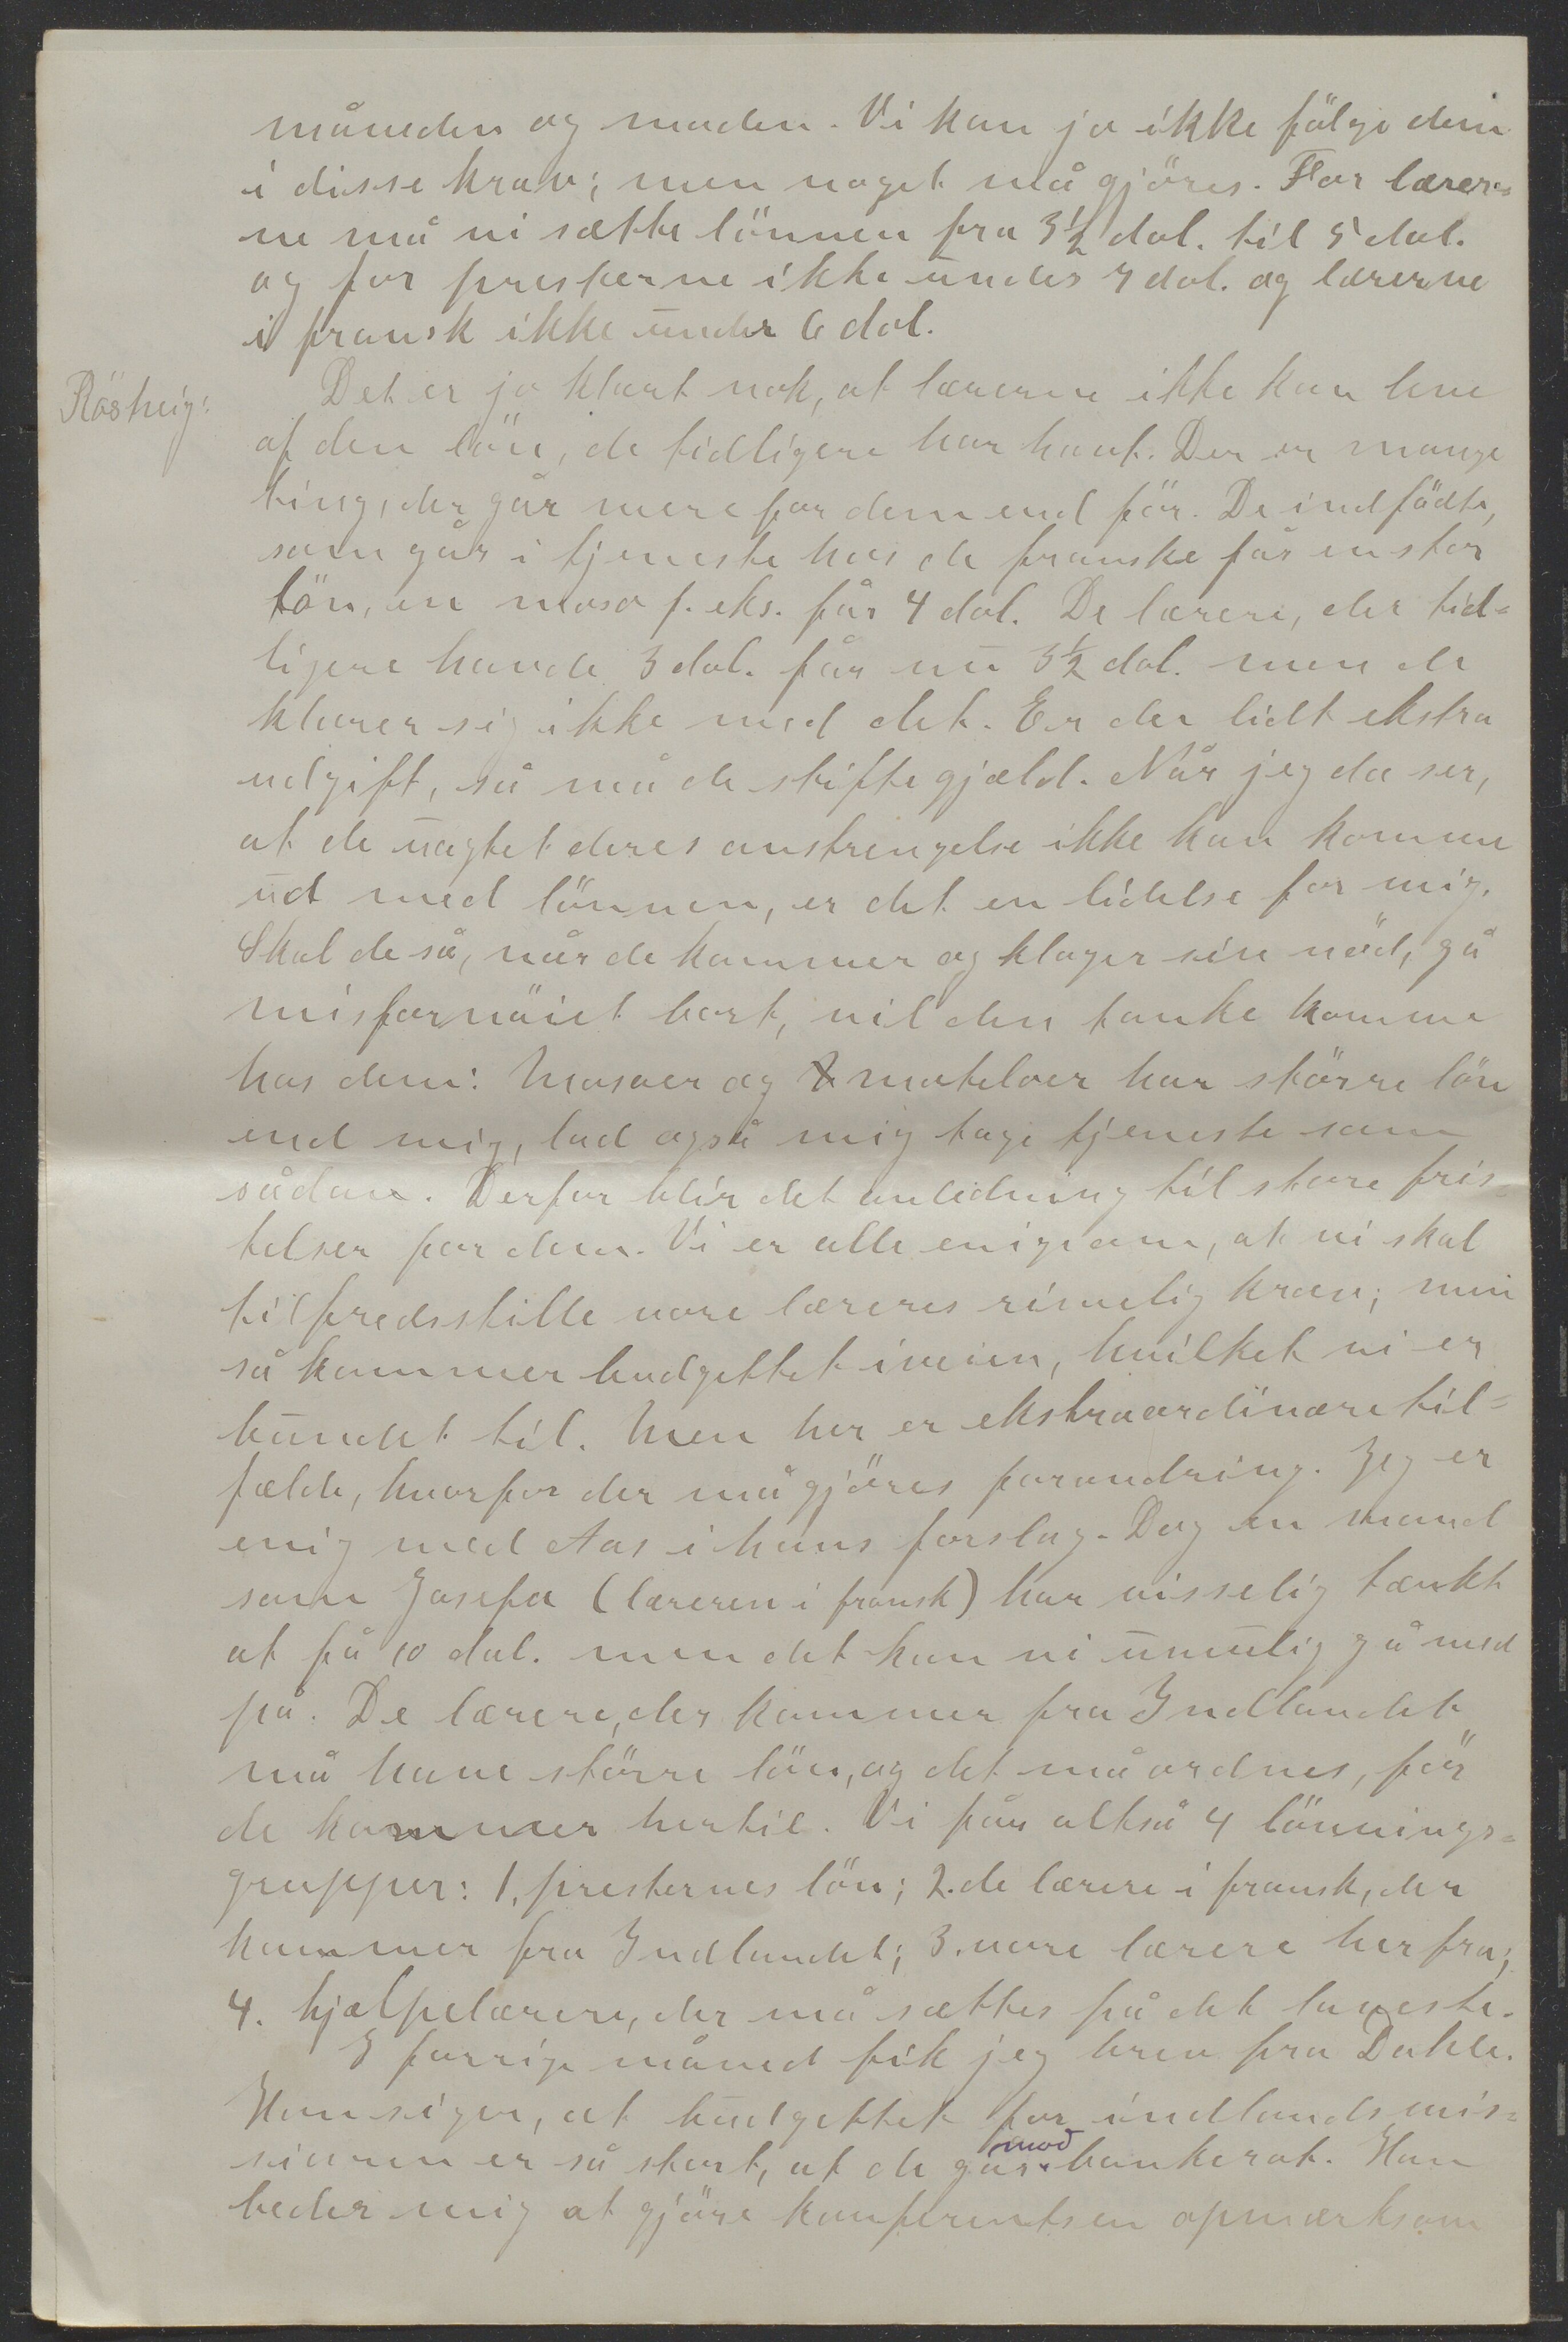 måneden og maden. Vi kan jo ikke fölge dem
i disse krav; men noget må gjöres. For lærer=
ne må vi sætte lönnen fra 3½ dol. til 5 dol.
og for presterne ikke under 7 dol. og lærerne
i fransk ikke under 6 dol.
Röstvig: Det er jo klart nok, at lærerne ikke kan leve
af den lön, de tidligere har havt. Der er mange
ting, der går mere for dem end för. De indfödte,
som går i tjeneste hos de franske får en stor
lön, en maso f. eks. får 4 dol. De lærere, der tid=
ligere havde 3 dol. får nu 3½ dol. men de
klarer sig ikke med det. Er der lidt ekstra
udgift, så må de stifte gjæld. Når jeg da ser,
at de uagtet deres anstrengelse ikke kan komme
ud med lönnen, er det en lidelse for mig.
Skal de så, når de kommer og klager sin nöd, gå
misfornöiet bort, vil den tanke komme
hos dem: Masoer og mateloer har större lön
end mig, lad også mig tage tjeneste som
sådan. Derfor blir det anledning til store fris=
telser for dem. Vi er alle enige om, at vi skal
tilfredsstille vore læreres rimelig krav; men
så kommer budgettet iveien, hvilket vi er
bundet til. Men her er ekstraordinære til=
fælde, hvorfor der må gjöres forandring. Jeg er
enig med Aas i hans forslag. Dog en mand
som Josefa (læreren i fransk) har visselig tænkt
at få 10 dol. men det kan vi umulig gå med
på. De lærere, der kommer fra Indlandet
må have större lön, og det må ordnes, för
de kommer hertil. Vi får altså 4 lönnings=
grupper: 1. presternes lön; 2. de lærere i fransk, der
kommer fra Indlandet; 3. vore lærere her fra;
4. hjælpelærere, der må sættes på det laveste.
I forrige måned fik jeg brev fra Dahle.
Han siger, at budgettet for indlandsmis=
sionen er så stort, at de går mod bankerot. Han
beder mig at gjöre konferentsen opmærksom